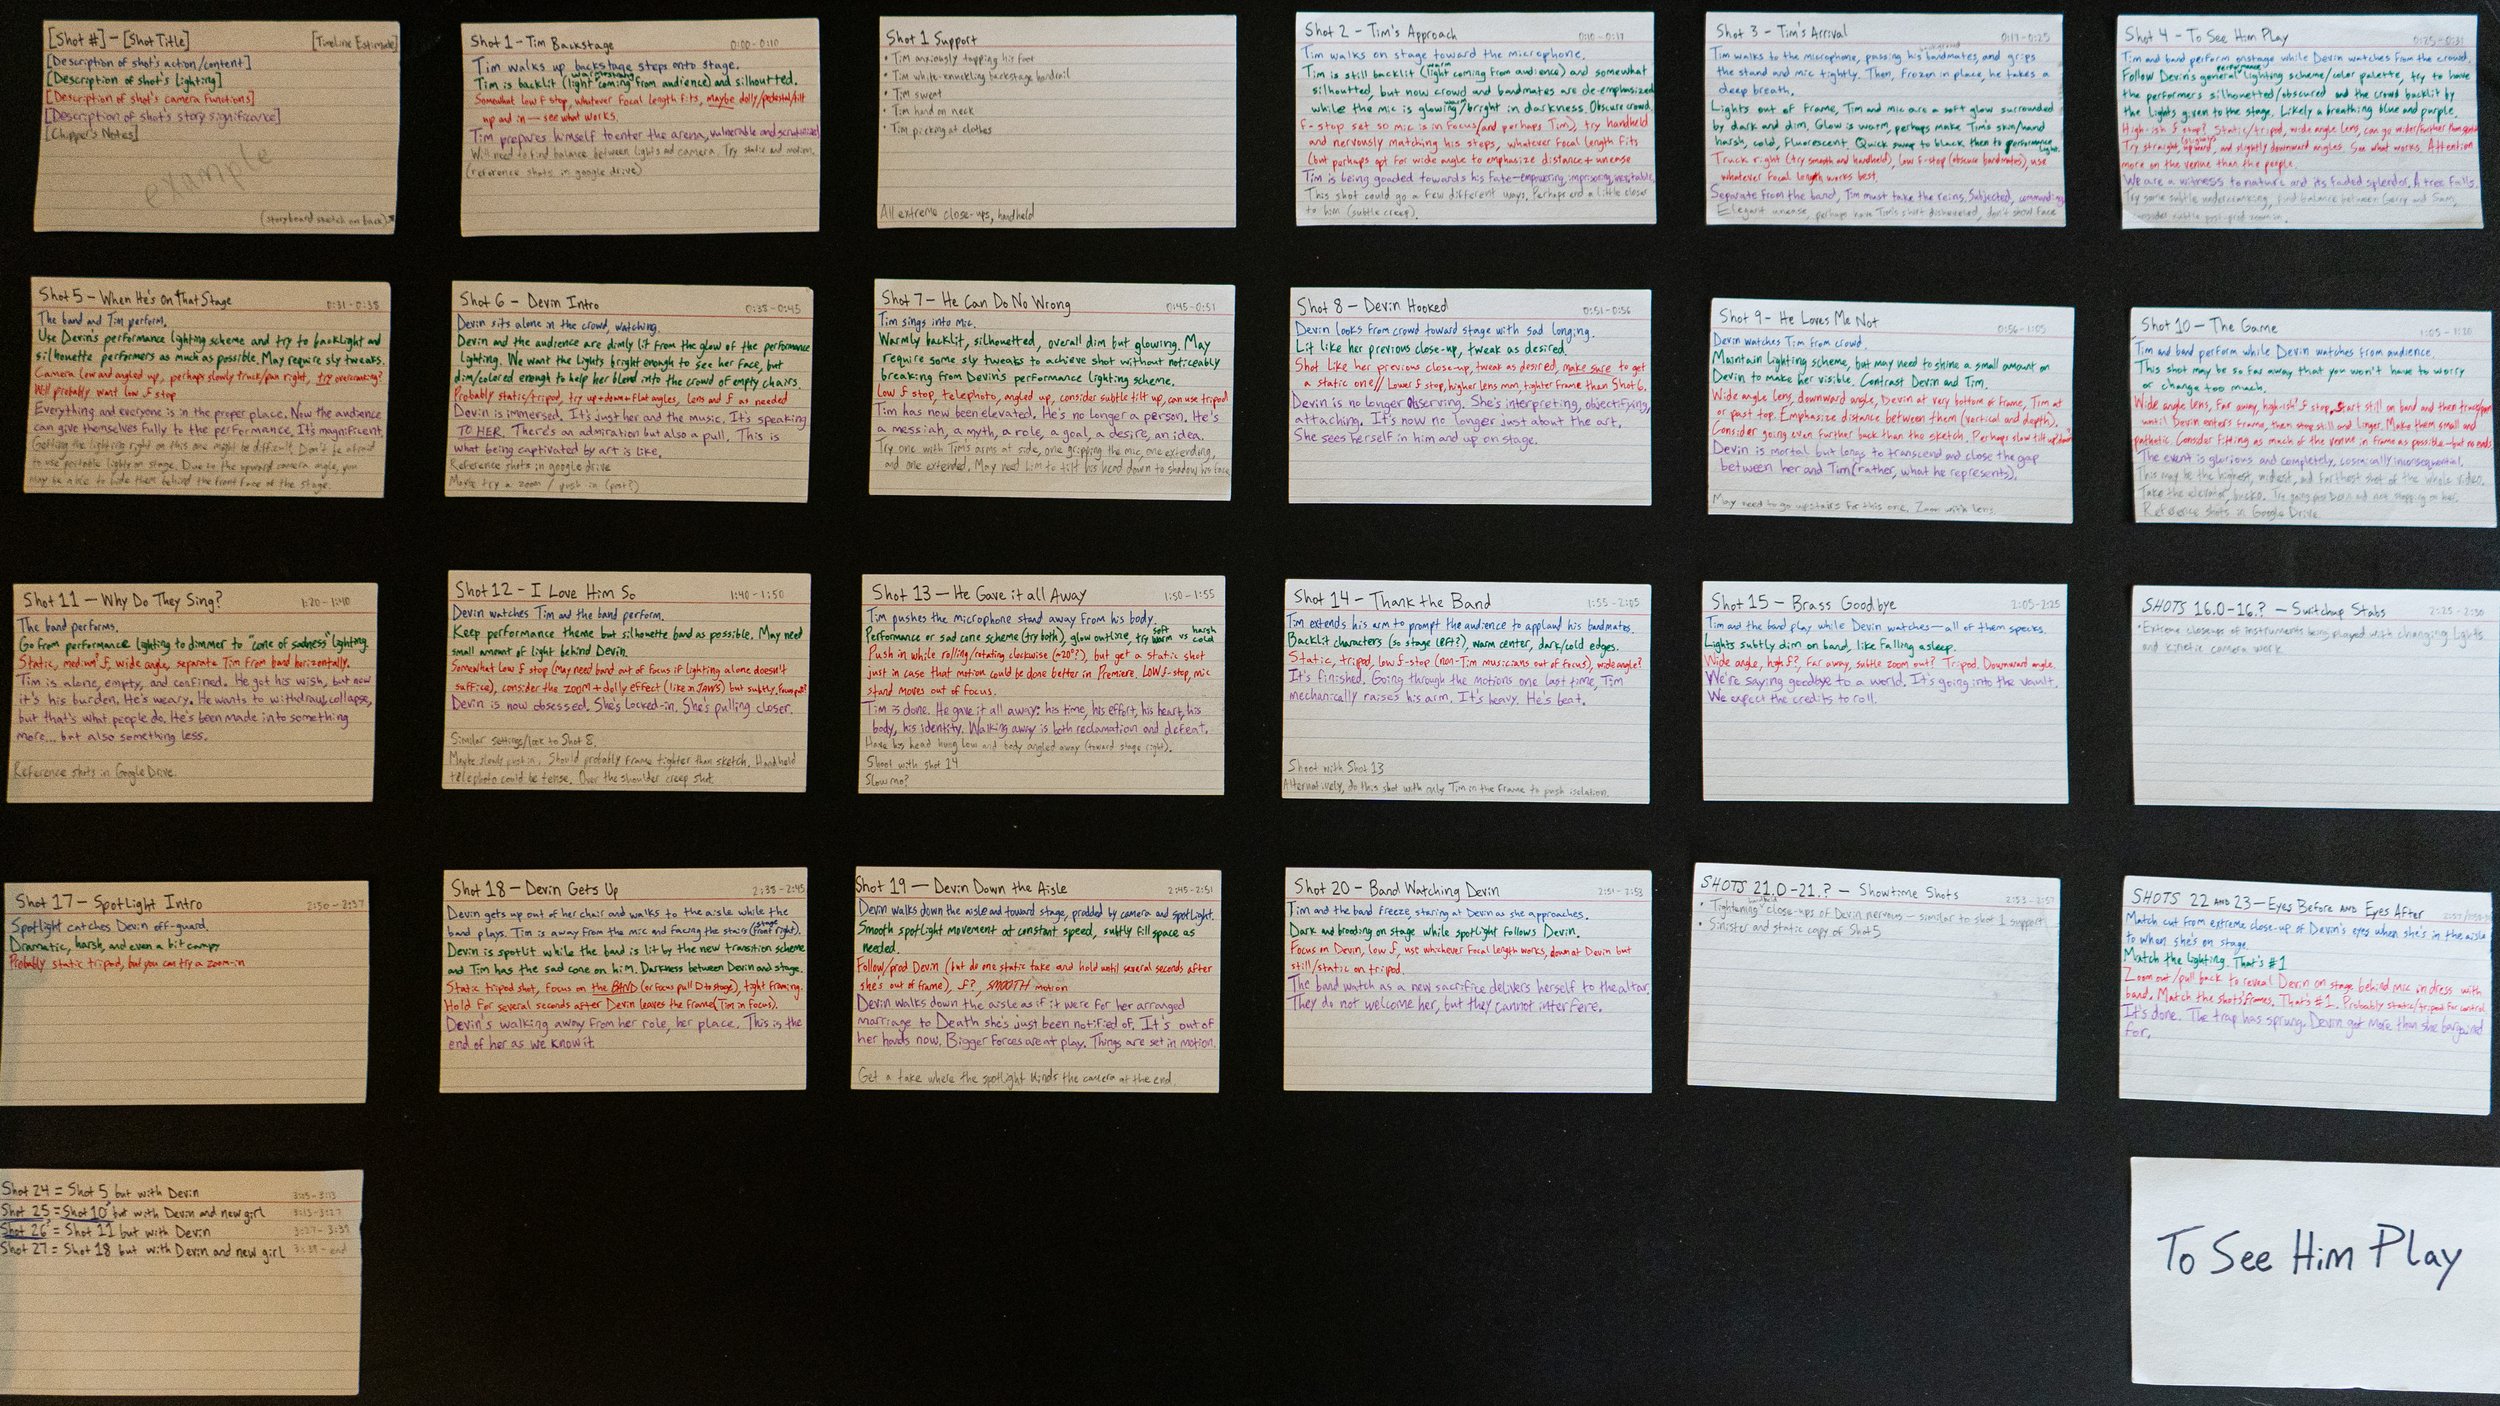 [Shot #] - [Shot Title] [Timeline Estimate]
[Description of shot's action/content]
[Description of shot's lighting]
[Description of shot's camera functions]
[Description of shot's story significance]
[Chopper's Notes]
example
(storyboard sketch on back)
Shot 1 - Tim Backstage 0:00-0:10
Tim walks up backstage steps onto stage.
Tim is backlit (light coming from audience) and silhoutted.
Somewhat low f stop, whatever focal length fits, maybe dolly/pedestal/tilt
up and in — see what works.
Tim prepares himself to enter the arena, vulnerable and scrutinized
Will need to find balance between lights and camera. Try static and motion.
(reference shots in google drive)
Shot 1 Support
• Tim anxiously tapping his foot
• Tim white-knuckling backstage handrail
• Tim sweat
• Tim hand on neck
• Tim picking at clothes
All extreme close-ups, handheld
Shot 2 - Tim's Approach 0:10-0:17
Tim walks on stage toward the microphone.
Tim is still backlit (warm light coming from audience) and somewhat
silhoutted, but now crowd and bandmates are de-emphasized
while the mic is glowing warm/bright in darkness. Obscure crowd.
f-stop set so mic is in focus (and perhaps Tim), try handheld
and nervously matching his steps, whatever focal length fits
(but perhaps opt for wide angle to emphasize distance + unease
Tim is being goaded towards his fate—empowering, imprisoning, inevitable.
This shot could go a few different ways. Perhaps end a little closer
to him (subtle creep).
Shot 3 - Tim's Arrival 0:17-0:25
Tim walks to the microphone, passing his background bandmates, and grips
the stand and mic tightly. Then, frozen in place, he takes a
deep breath.
Lights out of frame, Tim and mic are a soft glow surrounded
by dark and dim. Glow is warm, perhaps make Tim's skin/hand
harsh, cold, fluorescent. Quick swap to black then to performance light.
Truck right (try smooth and handheld), low f-stop (obscure bandmates), use
whatever focal length works best.
Separate from the band, Tim must take the reins. Subjected, commanding
Elegant unease, perhaps have Tim's shirt disheveled, don't show face
Shot 4 - To See Him Play 0:25-0:31
Tim and band perform onstage while Devin watches from the crowd.
Follow Devin's general performance lighting scheme/color palette, try to have
the performers silhouetted/obscured and the crowd backlit by
the lights given to the stage. Likely a breathing blue and purple.
High-ish f stop? Static/tripod, wide angle lens, can go wider/further from
Try straight, upward, and slightly downward angles. See what works. Attention
more on the venue than the people.
We are a witness to nature and its faded splendor. A tree falls.
Try some subtle undercranking, find balance between Gerry and
consider subtle post-prod zoom in.
Shot 5 - When He's On That Stage 0:31-0:38
The band and Tim perform.
Use Devin's performance lighting scheme and try to backlight and
silhouette performers as much as possible. May require sly tweaks.
Camera low and angled up, perhaps slowly truck/pan right, try overcranking?
Will probably want low f stop
Everything and everyone is in the proper place. Now the audience
can give themselves fully to the performance. It's magnificent.
Getting the lighting right on this one might be difficult. Don't be afraid
to use portable lights on stage. Due to the upward camera angle, you
may be able to hide them behind the front face of the stage.
Shot 6 - Devin Intro 0:38-0:45
Devin sits alone in the crowd, watching.
Devin and the audience are dimly lit from the glow of the performance
lighting. We want the lights bright enough to see her face, but
dim/colored enough to help her blend into the crowd of empty chairs.
Probably static/tripod, try up+down+flat angles, lens and f as needed
Devin is immersed. It's just her and the music. It's speaking
TO HER. There's an admiration but also a pull. This is
what being captivated by art is like.
Reference shots in google drive
Maybe try a zoom / push in (post?)
Shot 7 - He Can Do No Wrong 0:45-0:51
Tim sings into mic.
Warmly backlit, silhouetted, overall dim but glowing. May
require some sly tweaks to achieve shot without noticeably
breaking from Devin's performance lighting scheme.
Low f stop, telephoto, angled up, consider subtle tilt up, can use tripod
Tim has now been elevated. He's no longer a person. He's
a messiah, a myth, a role, a goal, a desire, an idea.
Try one with Tim's arms at side, one gripping the mic, one extending,
and one extended. May need him to tilt his head down to shadow his face
Shot 8 - Devin Hooked 0:51-0:56
Devin looks from crowd toward stage with sad longing.
Lit like her previous close-up, tweak as desired.
Shot like her previous close-up, tweak as desired, make sure to get
a static one// Lower f stop, higher lens mm, tighter frame than Shot 6.
Devin is no longer observing. She's interpreting, objectifying,
attaching. It's now no longer just about the art.
She sees herself in him and up on stage.
Shot 9 - He Loves Me Not 0:56-1:05
Devin watches Tim from crowd.
Maintain lighting scheme, but may need to shine a small amount on
Devin to make her visible. Contrast Devin and Tim.
Wide angle lens, downward angle, Devin at very bottom of frame, Tim at
or past top. Emphasize distance between them (vertical and depth).
Consider going even further back than the sketch. Perhaps slow tilt up/down
Devin is mortal but longs to transcend and close the gap
between her and Tim (rather, what he represents).
May need to go upstairs for this one. Zoom with lens.
Shot 10 - The Game 1:05-1:20
Tim and band perform while Devin watches from audience.
This shot may be so far away that you won't have to worry
or change too much.
Wide angle lens, far away, high-ish? f stop, start still on band and then truck/pan
until Devin enters frame, then stop still and linger. Make them small and
pathetic. Consider fitting as much of the venue in frame as possible—but no ends
The event is glorious and completely, cosmically inconsequential.
This may be the highest, widest, and farthest shot of the whole video.
Take the elevator, bucko. Try going past Devin and not stopping on her.
Reference shots in Google Drive.
Shot 11 - Why Do They Sing? 1:20-1:40
The band performs.
Go from performance lighting to dimmer to "cone of sadness" lighting.
Static, medium f, wide angle, separate Tim from band horizontally.
Tim is alone, empty, and confined. He got his wish, but now
it's his burden. He's weary. He wants to withdraw, collapse,
but that's what people do. He's been made into something
more... but also something less.
Reference shots in Google Drive.
Shot 12 - I Love Him So 1:40-1:50
Devin watches Tim and the band perform.
Keep performance theme but silhouette band as possible. May need
small amount of light behind Devin.
Somewhat low f stop (may need band out of focus if lighting alone doesn't
suffice), consider the zoom+dolly effect (like in JAWS) but subtly.
Devin is now obsessed. She's locked-in. She's pulling closer.
Similar settings/look to Shot 8.
Maybe slowly push in. Should probably frame tighter than sketch. Handheld
telephoto could be tense. Over the shoulder creep shot
Shot 13 - He Gave it all Away 1:50-1:55
Tim pushes the microphone stand away from his body.
Performance or sad cone scheme (try both), glow outline, try soft warm vs harsh cold
Push in while rolling/rotating clockwise (≈20°?), but get a static shot
just in case that motion could be done better in Premiere. LOW f-stop, mic
stand moves out of focus.
Tim is done. He gave it all away: his time, his effort, his heart, his
body, his identity. Walking away is both reclamation and defeat.
Have his head hung low and body angled away (toward stage right).
Shoot with shot 14
Slowmo?
Shot 14 - Thank the Band 1:55-2:05
Tim extends his arm to prompt the audience to applaud his bandmates.
Backlit characters (so stage left?), warm center, dark/cold edges.
Static, tripod, low f-stop (non-Tim musicians out of focus), wide angle?
It's finished. Going through the motions one last time, Tim
mechanically raises his arm. It's heavy. He's beat.
Shoot with Shot 13
Alternatively, do this shot with only Tim in the frame to push isolation.
Shot 15 - Brass Goodbye 2:05-2:25
Tim and the band play while Devin watches—all of them specks.
Lights subtly dim on band, like falling asleep.
Wide angle, high f?, far away, subtle zoom out? Tripod. Downward angle.
We're saying goodbye to a world. It's going into the vault.
We expect the credits to roll.
SHOTS 16.0-16.? - Switchup Stabs 2:25-2:30
• Extreme closeups of instruments being played with changing lights
and kinetic camera work.
Shot 17 - Spotlight Intro 2:30-2:37
Spotlight catches Devin off-guard.
Dramatic, harsh, and even a bit campy
Probably static tripod, but you can try a zoom-in
Shot 18 - Devin Gets Up 2:38-2:45
Devin gets up out of her chair and walks to the aisle while the
band plays. Tim is away from the mic and facing the stairs (stage front right).
Devin is spotlit while the band is lit by the new transition scheme
and Tim has the sad cone on him. Darkness between Devin and stage.
Static tripod shot, focus on the BAND (or focus pull D to stage), tight framing.
Hold for several seconds after Devin leaves the frame (Tim in focus).
Devin's walking away from her role, her place. This is the
end of her as we know it.
Shot 19 - Devin Down the Aisle 2:45-2:51
Devin walks down the aisle and toward stage, prodded by camera and spotlight.
Smooth spotlight movement at constant speed, subtly fill space as
needed.
Follow/prod Devin (but do one static take and hold until several seconds after
she's out of frame), f?, SMOOTH motion
Devin walks down the aisle as if it were for her arranged
marriage to Death she's just been notified of. It's out of
her hands now. Bigger forces are at play. Things are set in motion.
Get a take where the spotlight blinds the camera at the end.
Shot 20 - Band Watching Devin 2:51-2:53
Tim and the band freeze, staring at Devin as she approaches.
Dark and brooding on stage while spotlight follows Devin.
Focus on Devin, low f, use whichever focal length works, down at Devin but
still/static on tripod.
The band watch as a new sacrifice delivers herself to the altar.
They do not welcome her, but they cannot interfere.
SHOTS 21.0-21.? - Showtime Shots 2:53-2:57
• Tightening close-ups of Devin nervous - similar to shot 1 support
• Sinister and static copy of Shot 5
SHOTS 22 AND 23 - Eyes Before AND Eyes After
Match cut from extreme close-up of Devin's eyes when she's in the aisle
to when she's on stage.
Match the lighting. That's #1
Zoom out/pull back to reveal Devin on stage behind mic in dress with
band. Match the shots' frames. That's #1. Probably static/tripod for control
It's done. The trap has sprung. Devin got more than she bargained
for.
Shot 24 = Shot 5 but with Devin 3:05-3:13
Shot 25 = Shot 10 but with Devin and new girl 3:13-3:27
Shot 26 = Shot 11 but with Devin 3:27-3:39
Shot 27 = Shot 18 but with Devin and new girl 3:39-end
To See Him Play